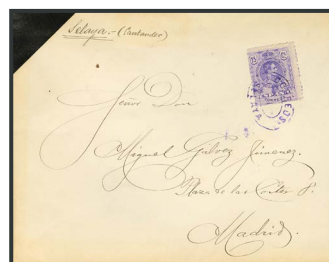 Selaya.- (Santander)
Señor Don
Miguel Galvez Jimenez.
Plaza de las Cortes 8.
Madrid.